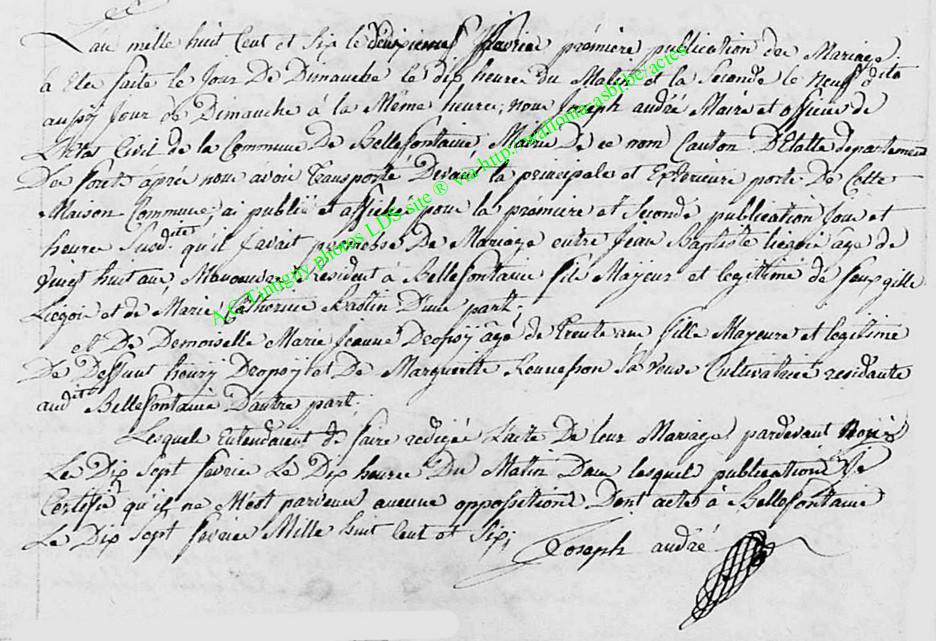 L'an mille huit Cent et Six le deuxieme fevrier prémiere publication de Mariage
à Eté faite le Jour De Dimanche le Dix heure Du Matin et la Seconde le Neuf dito
aussy Jour de Dimanche à la Même heure; nous Joseph andré Maire et officier de
L'Etat Civil de la Commune De Bellefontaine, Mairie De ce nom Canton D'Etalle departement
Des forêts aprés nous avoir transporté Devant la principale et Extérieure porte De Cette
Maison Commune, ai publié et affichée pour la prémiere et Seconde publication Jour et
heure Susdites qu'il y avait promesse De Mariage entre Jean Baptiste liégois âgé de
Vingt huit ans Manouvrier resident à Bellefontaine fils Majeur et legitime de feux gille
Liégois et de Marie Catherine Bastin D'une part;
et De Demoiselle Marie Jeanne Dropsy âgé de trente ans fille Mayeure et legitime
De Deffunt henry Dropsy et De Marguerite Rennesson Sa veuve Cultivatrice residante
audit Bellefontaine D'autre part;
Lesquels Entendaient de faire rediger L'acte De leur Mariage pardevant Nous
Le Dix Sept fevrier Le Dix heure Du Matin Dans lesquel publication Je
Certifie qu'il ne M'est parvenu aucune opposition Dont acte à Bellefontaine
Le Dix Sept fevrier Mille huit Cent et Six;
Joseph andré
A.G. Tintigny photos LDS site ® via http:wallonia-asbl.be/actes